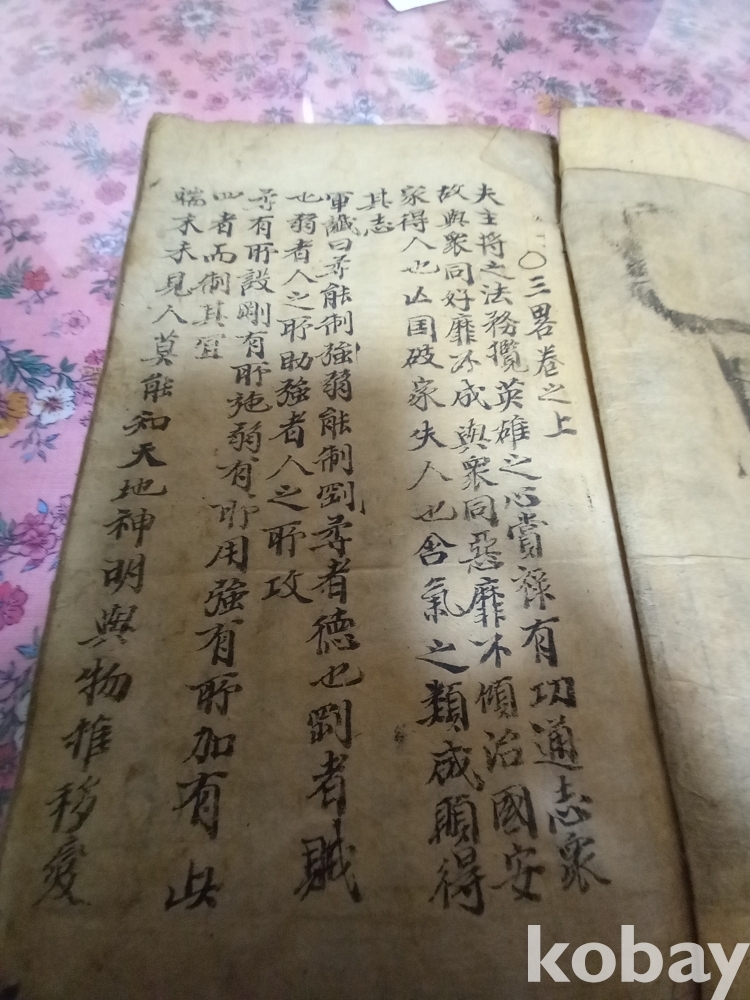 〇三畧卷之上
夫主將之法務攬英雄之心賞祿有功通志衆
故與衆同好靡不成與衆同惡靡不傾治國安
家得人也亡国破家失人也含氣之類咸願得
其志
軍讖曰柔能制強弱能制剛柔者德也剛者賊
也弱者人之所助強者人之所攻
柔有所設剛有所施弱有所用強有所加有此
四者而制其宜
端末未見人莫能知天地神明與物推移変
kobay